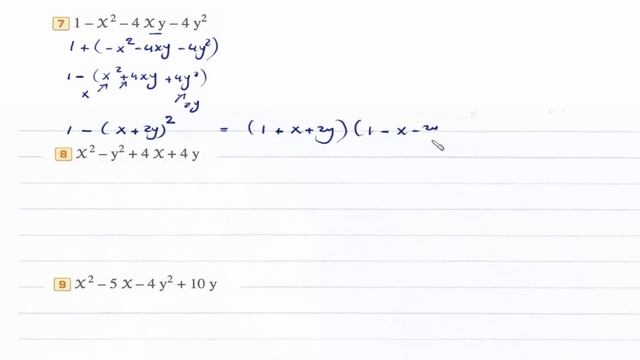 7 1 – x² – 4 x y – 4 y²
1 + (-x² - 4xy - 4y²)
1 - (x² + 4xy + 4y²)
x 2y
1 - (x + 2y)² = (1 + x + 2y)(1 - x - 2y
8 x² – y² + 4 x + 4 y
9 x² – 5 x – 4 y² + 10 y